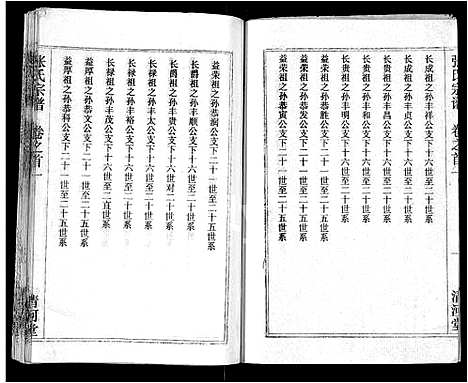 张氏宗谱 卷之首一
长成祖之孙丰祥公支下十六世至二十世系
长成祖之孙丰贞公支下十六世至二十世系
长成祖之孙丰昌公支下十六世至二十世系
长成祖之孙丰明公支下十六世至二十世系
益荣祖之孙恭胜公支下二十一世至二十五世系
益荣祖之孙恭发公支下二十一世至二十五世系
益荣祖之孙恭寅公支下二十一世至二十五世系
清河堂
益荣祖之孙恭润公支下二十一世至二十五世系
长爵祖之孙丰顺公支下十六世至二十世系
长爵祖之孙丰 公支下十六世对二十世系
长禄祖之孙丰太公支下十六世至二十世系
长禄祖之孙丰裕公支下十六世至二十世系
长禄祖之孙丰茂公支下十六世至二 世系
益厚祖之孙恭 公支下二十一世至二十五世系
益厚祖之孙恭科公支下二十一世至二十五世系
张氏宗谱 卷之首一
清河堂